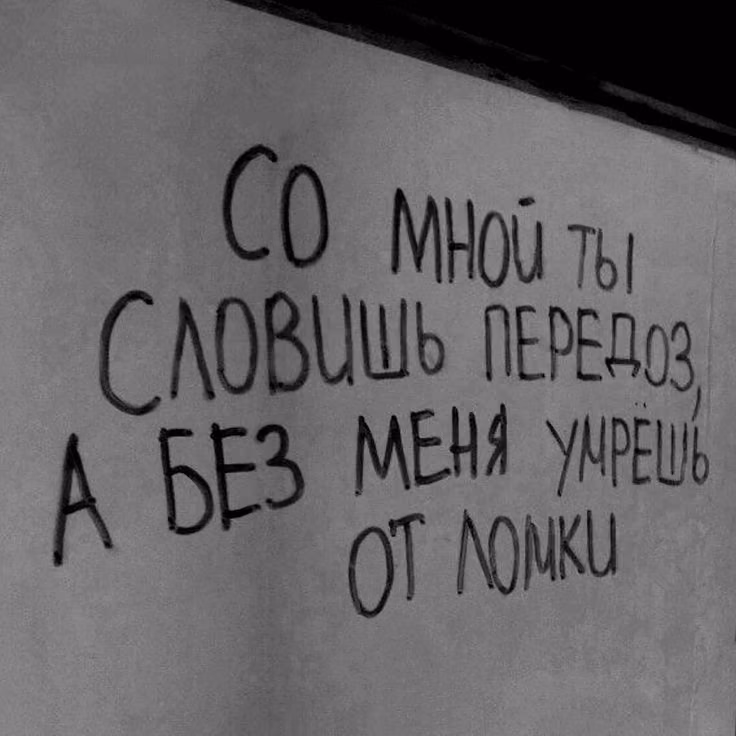 СО МНОЙ ТЫ
СЛОВИШЬ ПЕРЕДОЗ,
А БЕЗ МЕНЯ УМРЁШЬ
ОТ ЛОМКИ